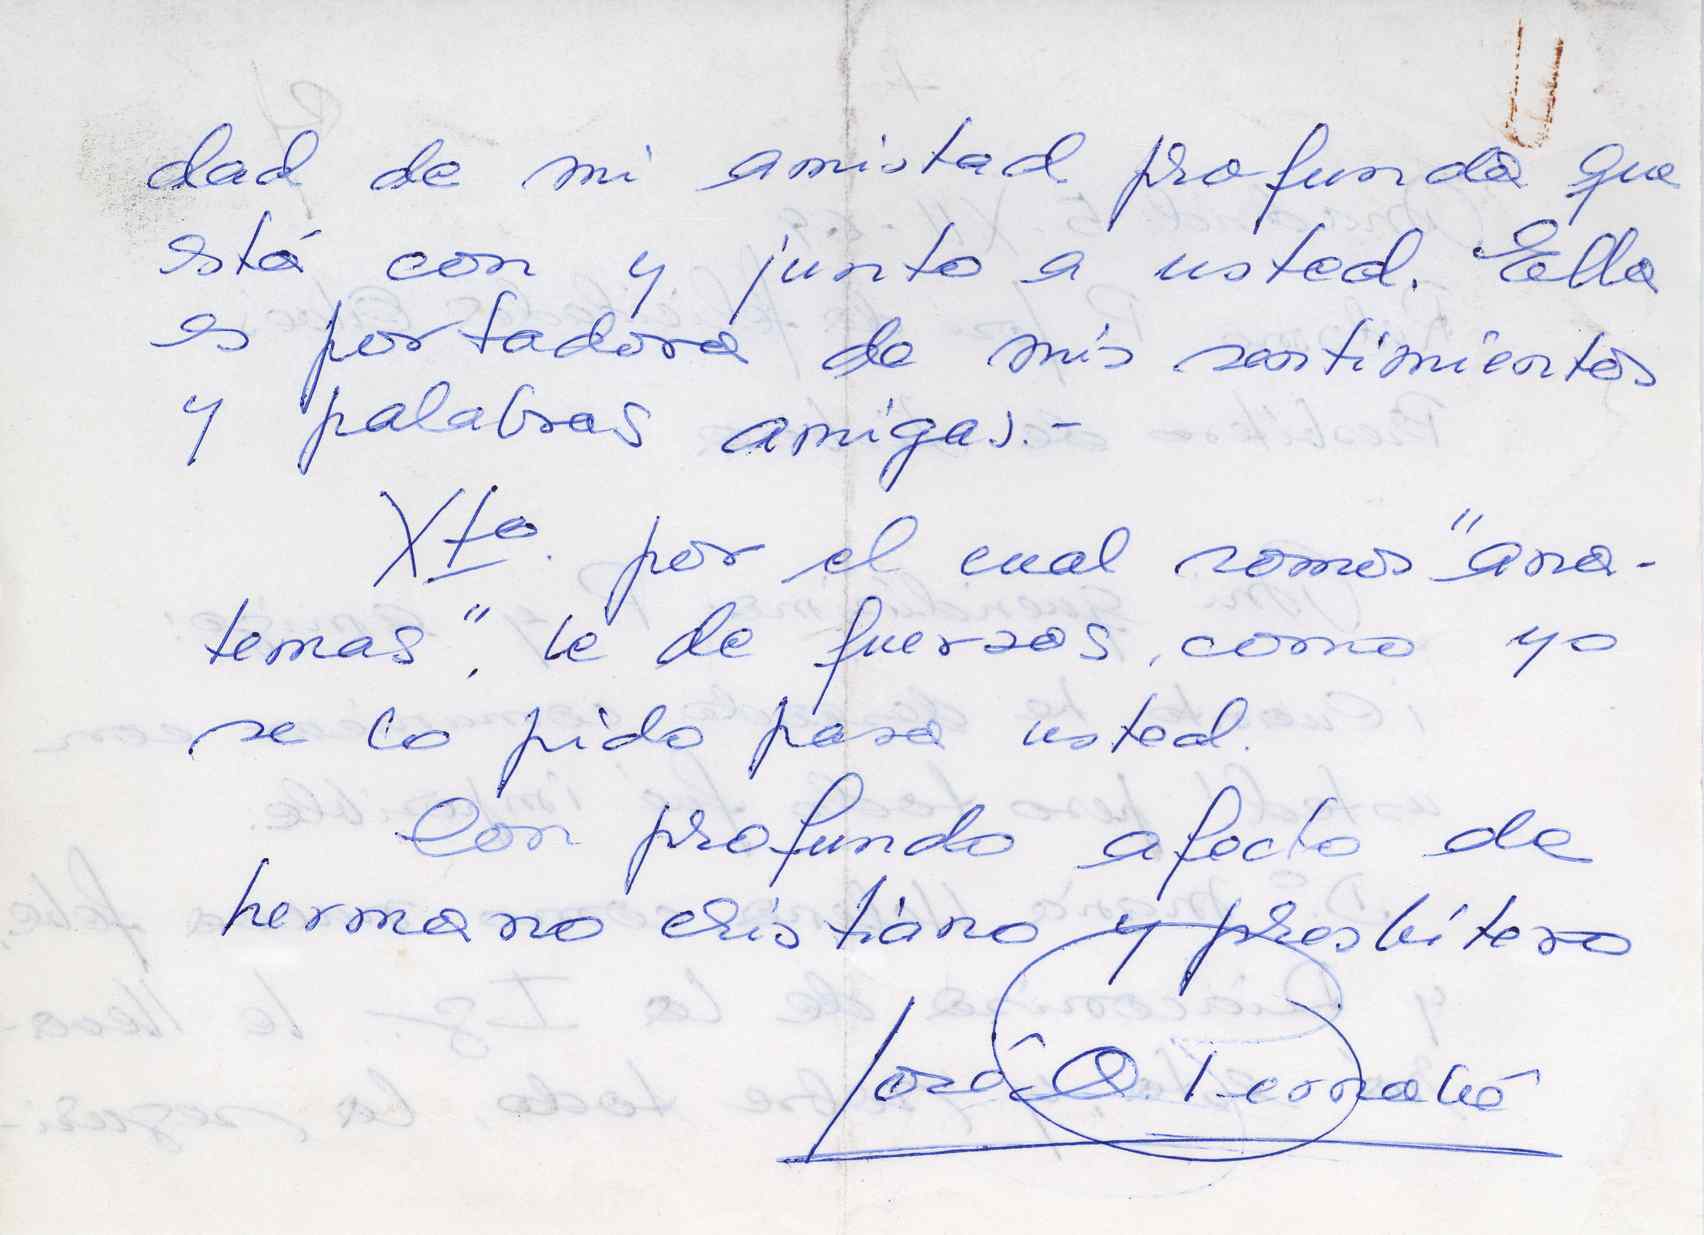 dad de mi amistad profunda que
está con y junto a usted. Ella
es portadora de mis sentimientos
y palabras amigas.-
Xto. por el cual somos "ana-
temas", le de fuerzas, como yo
se lo pido para usted.
Con profundo afecto de
hermano cristiano y presbítero
José O. Bernabé